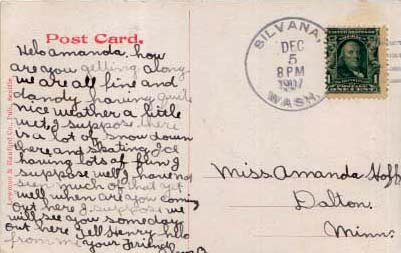 Post Card.
Helo amanda. how
are you getting along
we are all fine and
dandy having quite
nice weather a little
wet, I suppose there
is a lot of snow down
there and skating Ice
having lots of fun I
suppose well I have not
seen much of that yet
well when are you coming
out here I suppose we
will see you some day
out here Tell Henry helo
from me your Friend
Lowman & Hanford Co. Pub. Seattle.
SILVANA,
DEC
5
8 PM
1907
WASH.
1
Miss Amanda Hoff
Dalton.
Minn.